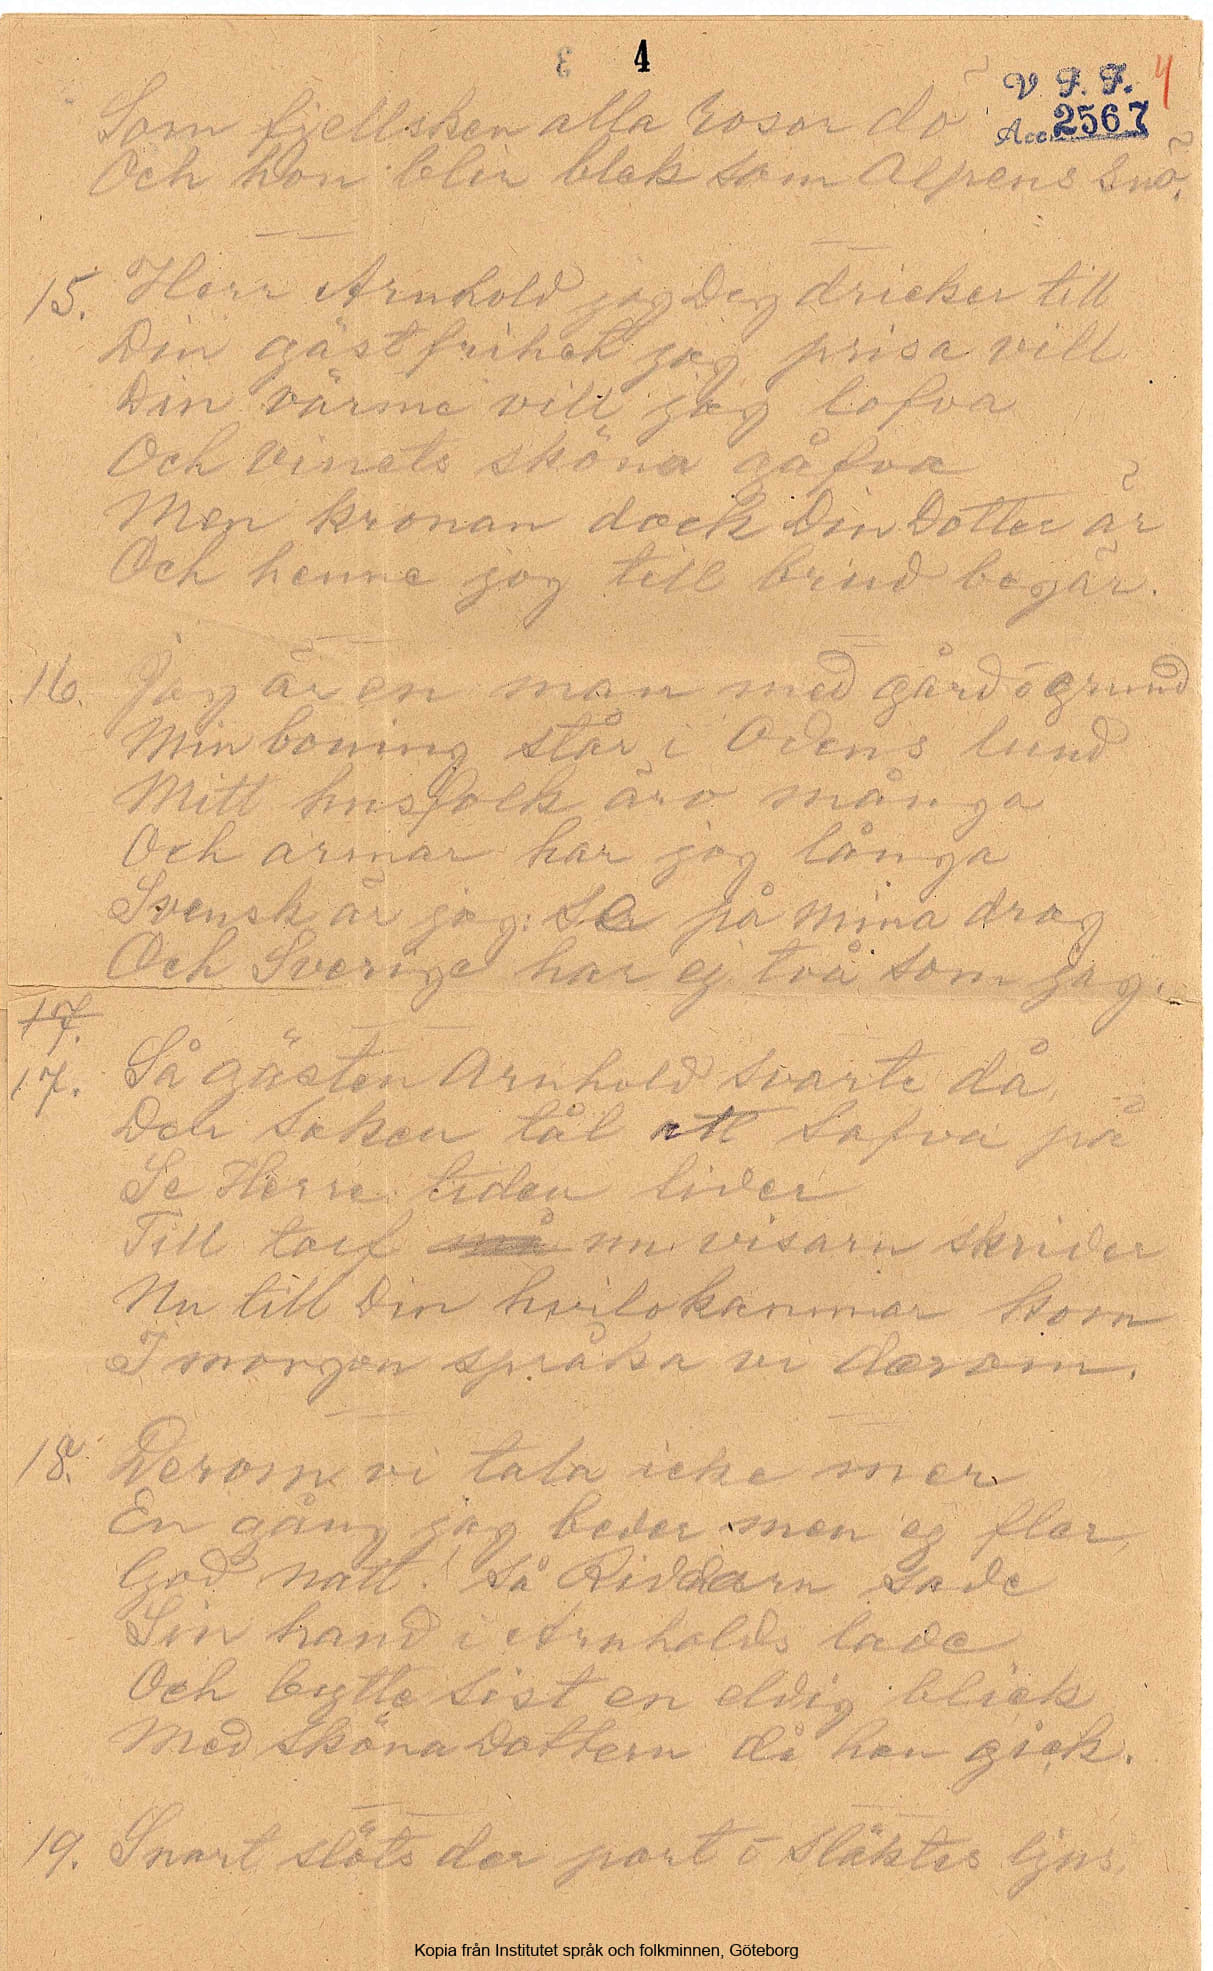 4
V. F. F. 4
Acc. 2567
Som fjellsken alla rosor dö
Och hon blir blek som Alpens Snö.
15. Herr Arnhold jag Deg dricker till
Din gästfrihet jag prisa vill
Din värme vill jag lofva
Och Vinets sköna gåfva
Men kronan dock Din Dotter är
Och henne jog till brud begär.
16. Jag är en man med gård ō grund
Min boning står i Odens lund
Mitt husfolk äro många
Och armar har jag långa
Svensk är jag: Se på mina drag
Och Sverige har ej två som jag.
17.
17. Så gästen Arnhold svarte då
Den Saken tål att Sofva på
Se Herre tiden lider
Till tolf nu visarn skrider
Nu till Din hvilokammar kom
I morgon språka vi derom.
18. Derom vi tala icke mer
En gång jag beder men ej fler
God Natt! Så Riddarn sade
Sin hand i Arnholds lade
Och bytte Sist en eldig blick
Med Sköna Dottern då han gick.
19. Snart slöts der port ō släktes ljus
Kopia från Institutet språk och folkminnen, Göteborg